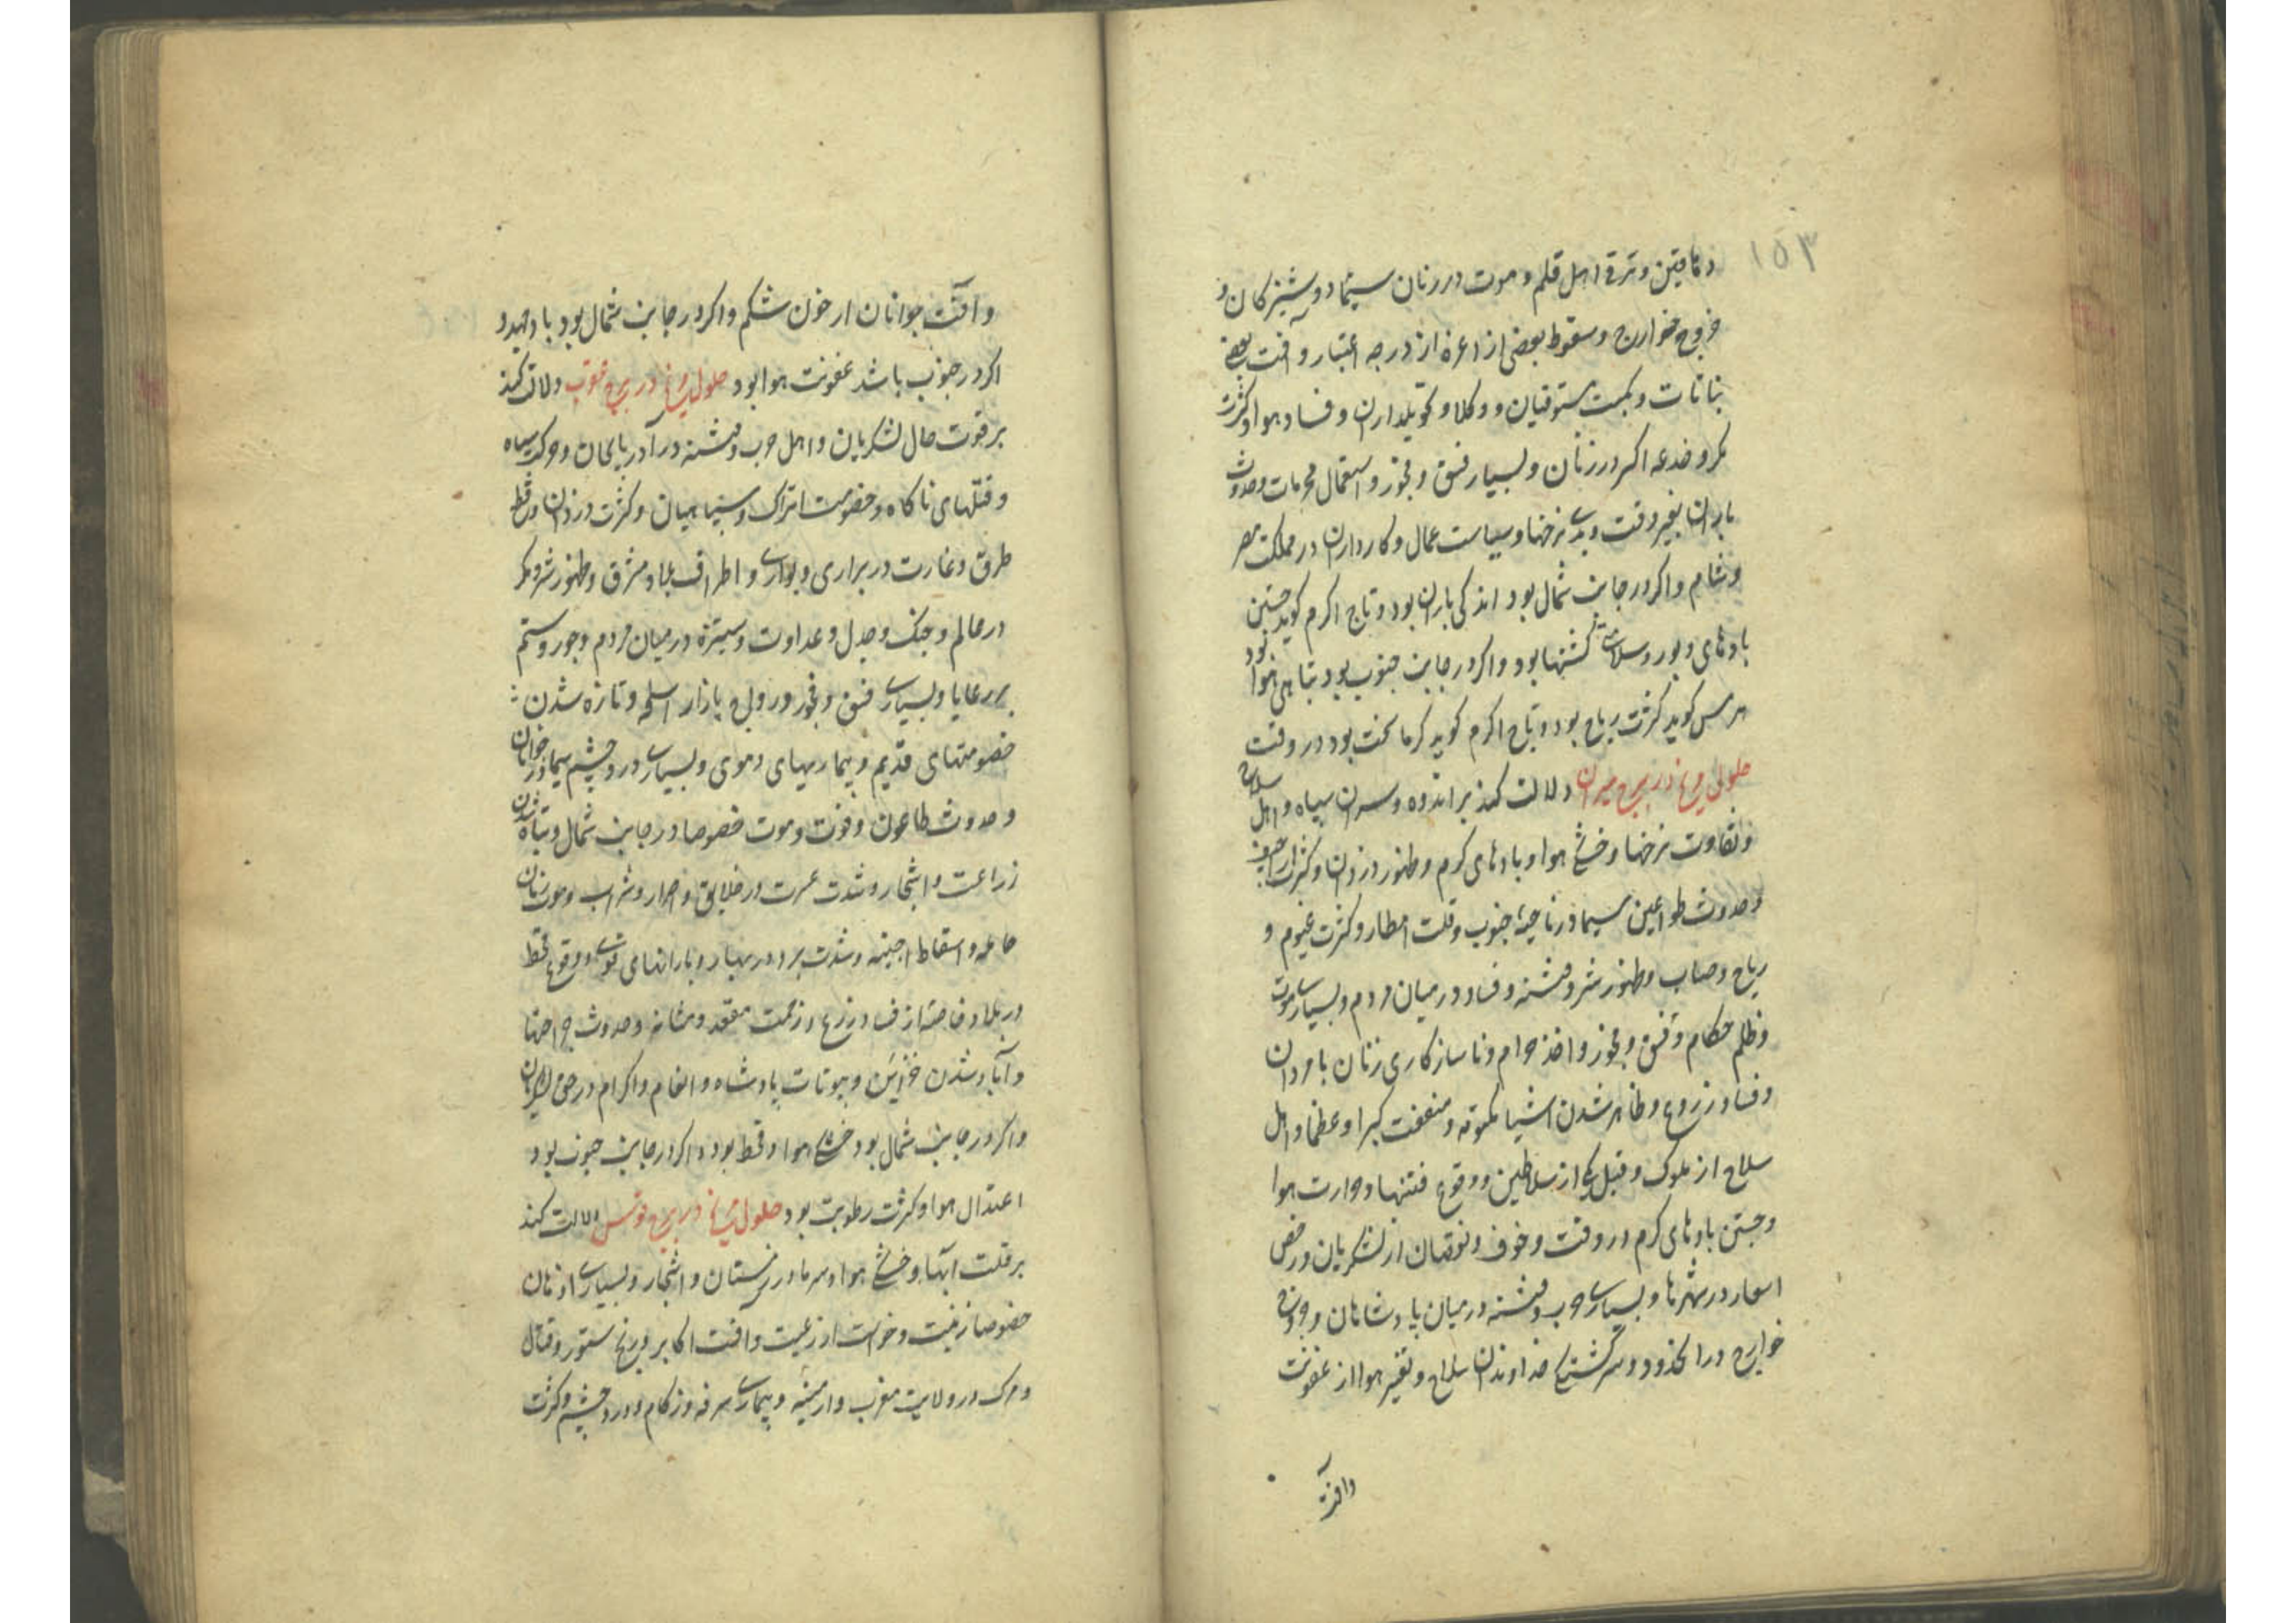 ۱۵۳
دهاقین و ترقی اهل قلم و موت در زنان سیما دوشیزکان و
خروج خوارج و سقوط بعضی از اعزه از درجه اعتبار و آفت بعضی
نباتات و نکبت مستوفیان و وکلا و تحویلداران و فساد هوا و کثرت
مکر و خدعه اکثر در زنان و بسیار فسق و فجور و استعمال محرمات و حدوث
باران بغیر وقت و بدی نرخها و سیاست عمال و کارداران در مملکت مصر
و شام و اکر در جانب شمال بود اندکی باران بود و تاج اکرم کوید جستن
بادهای دبور و سلامتی کشتیها بود و اکر در جانب جنوب بود تباهی هوا بود
هرمس کوید کثرت ریاح بود و تاج اکرم کوید کرما سخت بود در وقت
حلول مریخ در برج میزان دلالت کند بر اندوه و سران سپاه و اهل سلاح
و تفاوت نرخها و خشکی هوا و بادهای کرم و ظهور دزدان و کثرت اراجیف
و حدوث طواعین سیما در ناحیه جنوب و قلت امطار و کثرت غیوم و
ریاح و ضباب و ظهور شر و فتنه و فساد در میان مردم و بسیاری موت
و ظلم حکام و فسق و فجور و اخذ حرام و ناسازکاری زنان با مردان
و فساد زروع و ظاهر شدن اشیا مکتومه و منفعت کبرا و عظما و اهل
سلاح از ملوک و قتل یکی از سلاطین و وقوع فتنها و حرارت هوا
و جستن بادهای کرم در وقت و خوف و نقصان از لشکریان و رخص
اسعار در شهرها و بسیاری حرب و فتنه در میان پادشاهان و خروج
خوارج در آن حدود و سرکشتکی خداوندان سلاح و تغیر هوا از عفونت
وآفت
و آفت جوانان از خون شکم و اکر در جانب شمال بود باد جهد و
اکر در جنوب باشد عفونت هوا بود حلول مریخ در برج عقرب دلالت کند
بر قوت حال لشکریان و اهل حرب و فتنه در آذربایجان و حرکت سپاه
و قتلهای ناکاه و خصومت اتراک و سپاهیان و کثرت دزدان و قطع
طرق و غارت در براری و بوادی و اطراف بلاد مشرق و ظهور شر و مکر
در عالم و جنک و جدل و عداوت و ستیزه در میان مردم و جور و ستم
بر رعایا و بسیاری فسق و فجور و رواج بازار اسلحه و تازه شدن
خصومتهای قدیم و بیماریهای دموی و بسیاری درد چشم سیما در جوانان
و حدوث طاعون و فوت و موت خصوصا در جانب شمال و تباه شدن
زراعت و اشجار و شدت عسرت در خلایق و احرار و شراب و موت زنان
حامله و اسقاط اجنه و شدت برد در بهار و بارانهای قوی و وقوع قحط
در بلاد خاصه از فساد زرع و زحمت مقعد و مثانه و حدوث جراحتها
و آباد شدن خزاین و بیوتات پادشاه و انعام و اکرام در حق لشکریان
و اکر در جانب شمال بود خشکی هوا و قحط بود و اکر در جانب جنوب بود
اعتدال هوا و کثرت رطوبت بود حلول مریخ در برج قوس دلالت کند
بر قلت آبها و خشکی هوا و سرما در زمستان و اشجار و بسیاری
خصوصا زغیت و خواست از رعیت و آفت اکابر و رنج ستور و قتال
و مرک در ولایت مغرب و ارمنیه و بیماری سرفه و زکام و درد چشم و کثرت